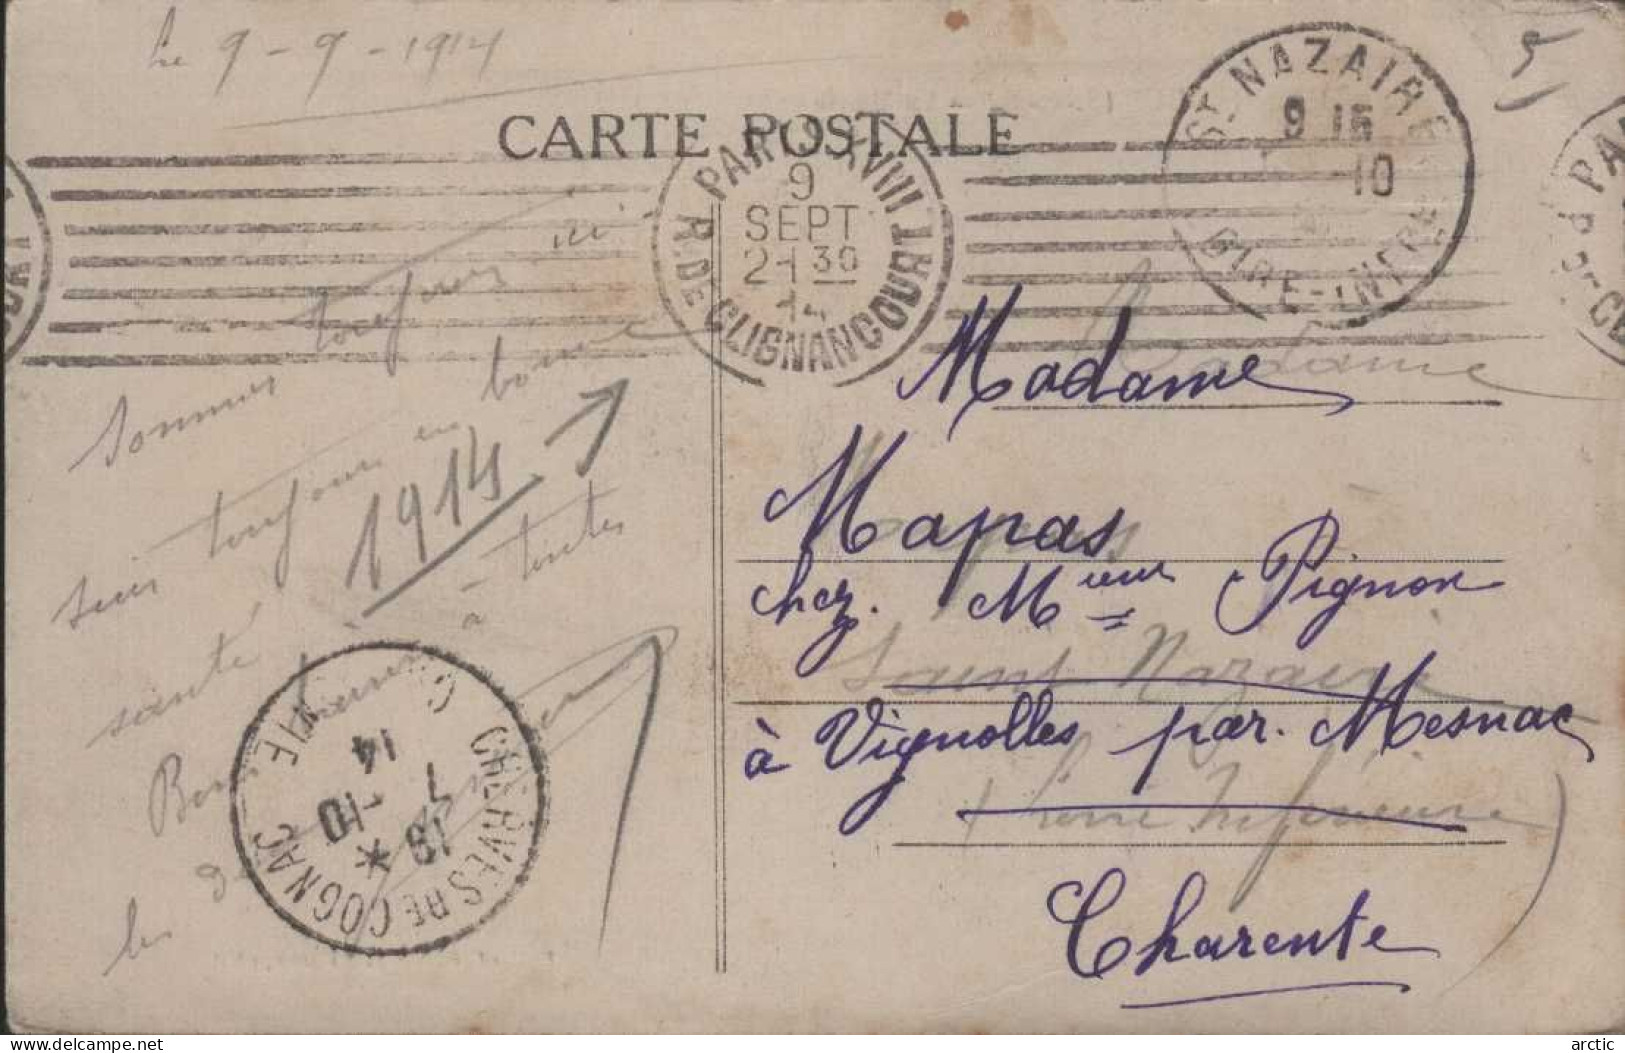 Le 9 - 9 - 1914
5
CARTE POSTALE
ST NAZAIRE
9 15
10
GARE - INFRE
PARIS XVIII
9
SEPT
21 30
14
R. DE CLIGNANCOURT
Sommes toujours ici
suis toujours en bonne
santé
à toutes
1914
Bons
les
CHERVES DE COGNAC
18
7 -10
14
Madame
Madame
Mapas
chez. Mr Pignon
Saint Nazaire
à Vignolles par. Mesnac
(Loire Inférieure)
Charente
delcampe.net
arctic